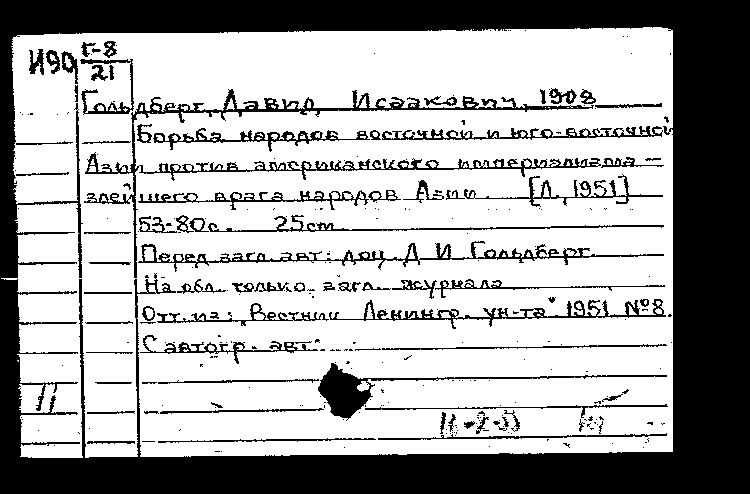 И90 Г-8
21
Гольдберг, Давид Исаакович, 1908
Борьба народов восточной и юго-восточной
Азии против американского империализма –
злейшего врага народов Азии. [Л., 1951]
53-80с. 25cm
Перед загл. авт: доц. Д И Гольдберг.
На обл. только загл. журнала
Отт. из: „Вестник Ленингр. ун-та" 1951 №8.
С автогр. авт.
11